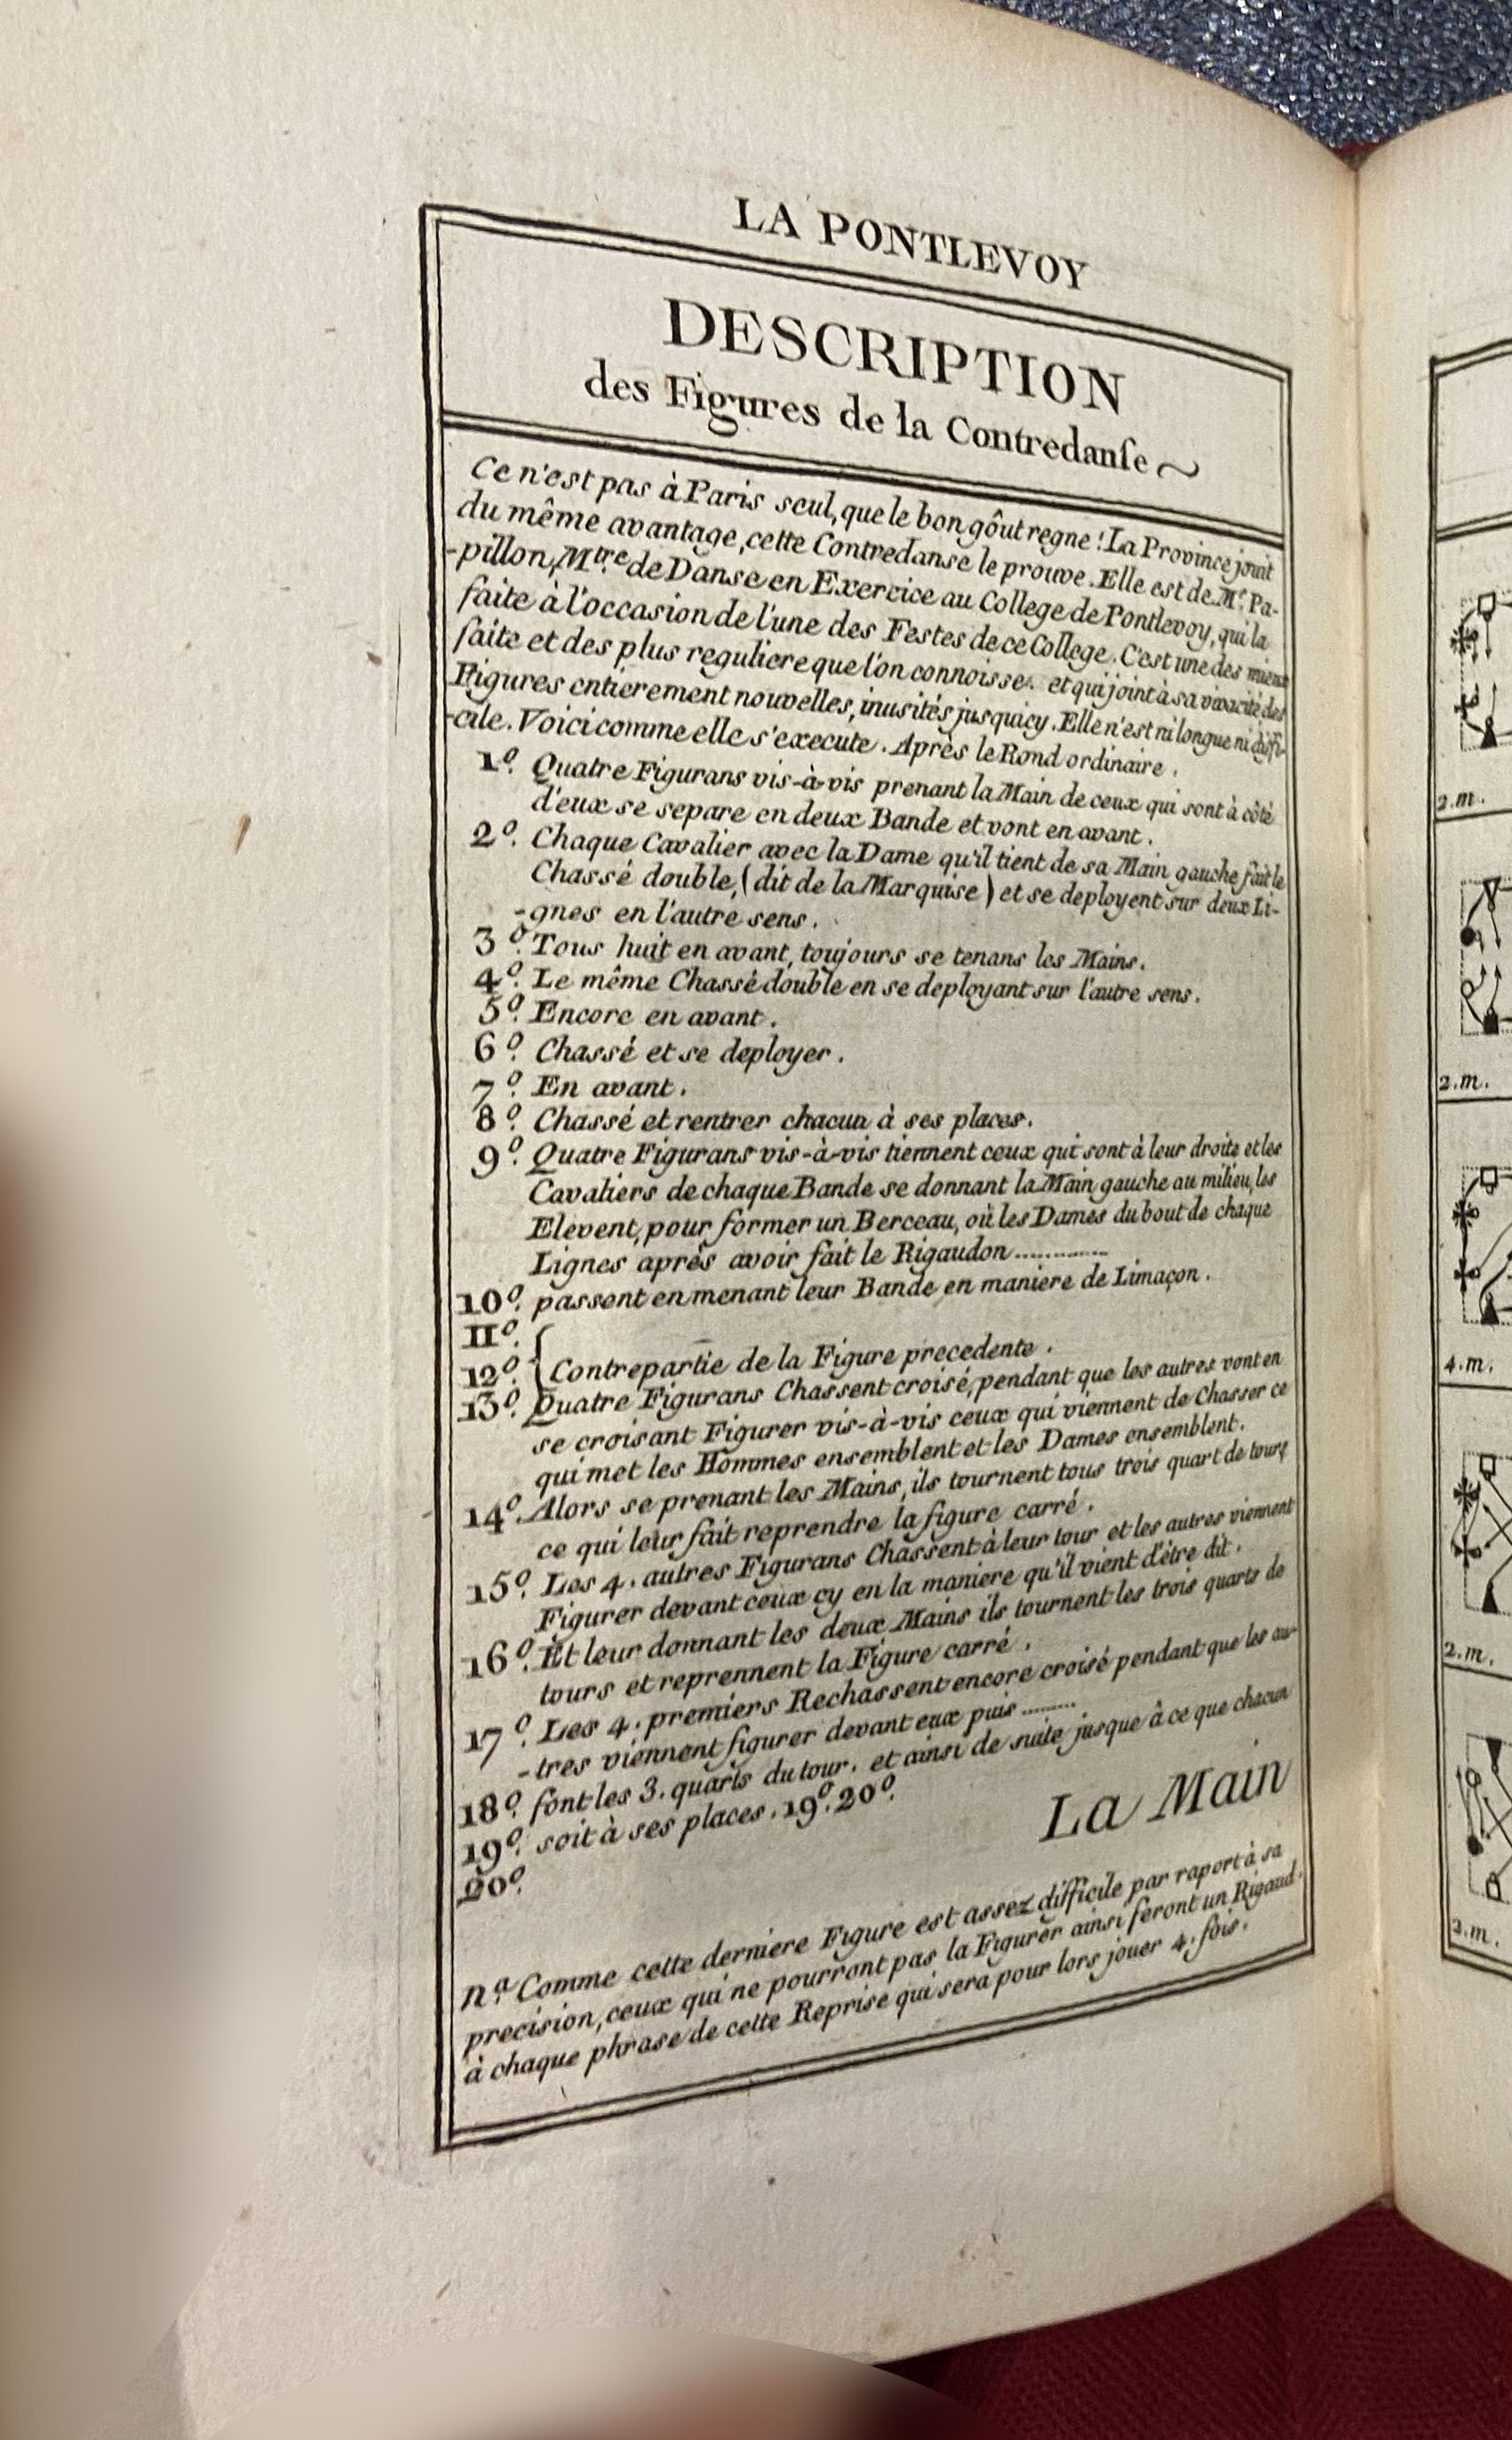 LA PONTLEVOY
DESCRIPTION
des Figures de la Contredanſe
Ce n'est pas à Paris seul, que le bon gôut regne ! La Province jouit
du même avantage, cette Contredanse le prouve. Elle est de Mr. Pa-
-pillon, Mtre de Danse en Exercice au College de Pontlevoy, qui la
faite à l'occasion de l'une des Festes de ce College. C'est une des mieux
faite et des plus reguliere que l'on connoisse. et qui joint à sa vivacité des
Figures entierement nouvelles, inusités jusquicy. Elle n'est ni longue ni diffi-
-cile. Voici comme elle s'execute. Après le Rond ordinaire.
1º. Quatre Figurans vis-à-vis prenant la Main de ceux qui sont à côté
d'eux se separe en deux Bande et vont en avant.
2º. Chaque Cavalier avec la Dame qu'il tient de sa Main gauche fait le
Chassé double, (dit de la Marquise) et se deployent sur deux Li-
-gnes en l'autre sens.
3º. Tous huit en avant, toujours se tenans les Mains.
4º. Le même Chassé double en se deployant sur l'autre sens.
5º. Encore en avant.
6º. Chassé et se deployer.
7º. En avant.
8º. Chassé et rentrer chacun à ses places.
9º. Quatre Figurans vis-à-vis tiennent ceux qui sont à leur droite et les
Cavaliers de chaque Bande se donnant la Main gauche au milieu, les
Elevent, pour former un Berceau, où les Dames du bout de chaque
Lignes aprés avoir fait le Rigaudon ............
10º. passent en menant leur Bande en maniere de Limaçon.
11º. {
12º. { Contrepartie de la Figure precedente.
13º. Quatre Figurans Chassent croisé, pendant que les autres vont en
se croisant Figurer vis-à-vis ceux qui viennent de Chasser ce
qui met les Hommes ensemblent et les Dames ensemblent.
14º. Alors se prenant les Mains, ils tournent tous trois quart de tours
ce qui leur fait reprendre la figure carré.
15º. Les 4. autres Figurans Chassent à leur tour et les autres viennent
Figurer devant ceux cy en la maniere qu'il vient d'être dit.
16º. Et leur donnant les deux Mains ils tournent les trois quarts de
tours et reprennent la Figure carré.
17º. Les 4. premiers Rechassent encore croisé pendant que les au-
-tres viennent figurer devant eux puis .........
18º. font les 3. quarts du tour. et ainsi de suite jusque à ce que chacun
19º. soit à ses places. 19º. 20º.
20º.
La Main
Na. Comme cette derniere Figure est assez difficile par raport à sa
precision, ceux qui ne pourront pas la Figurer ainsi feront un Rigaud.
à chaque phrase de cette Reprise qui sera pour lors jouer 4. fois.
2.m.
2.m.
4.m.
2.m.
2.m.